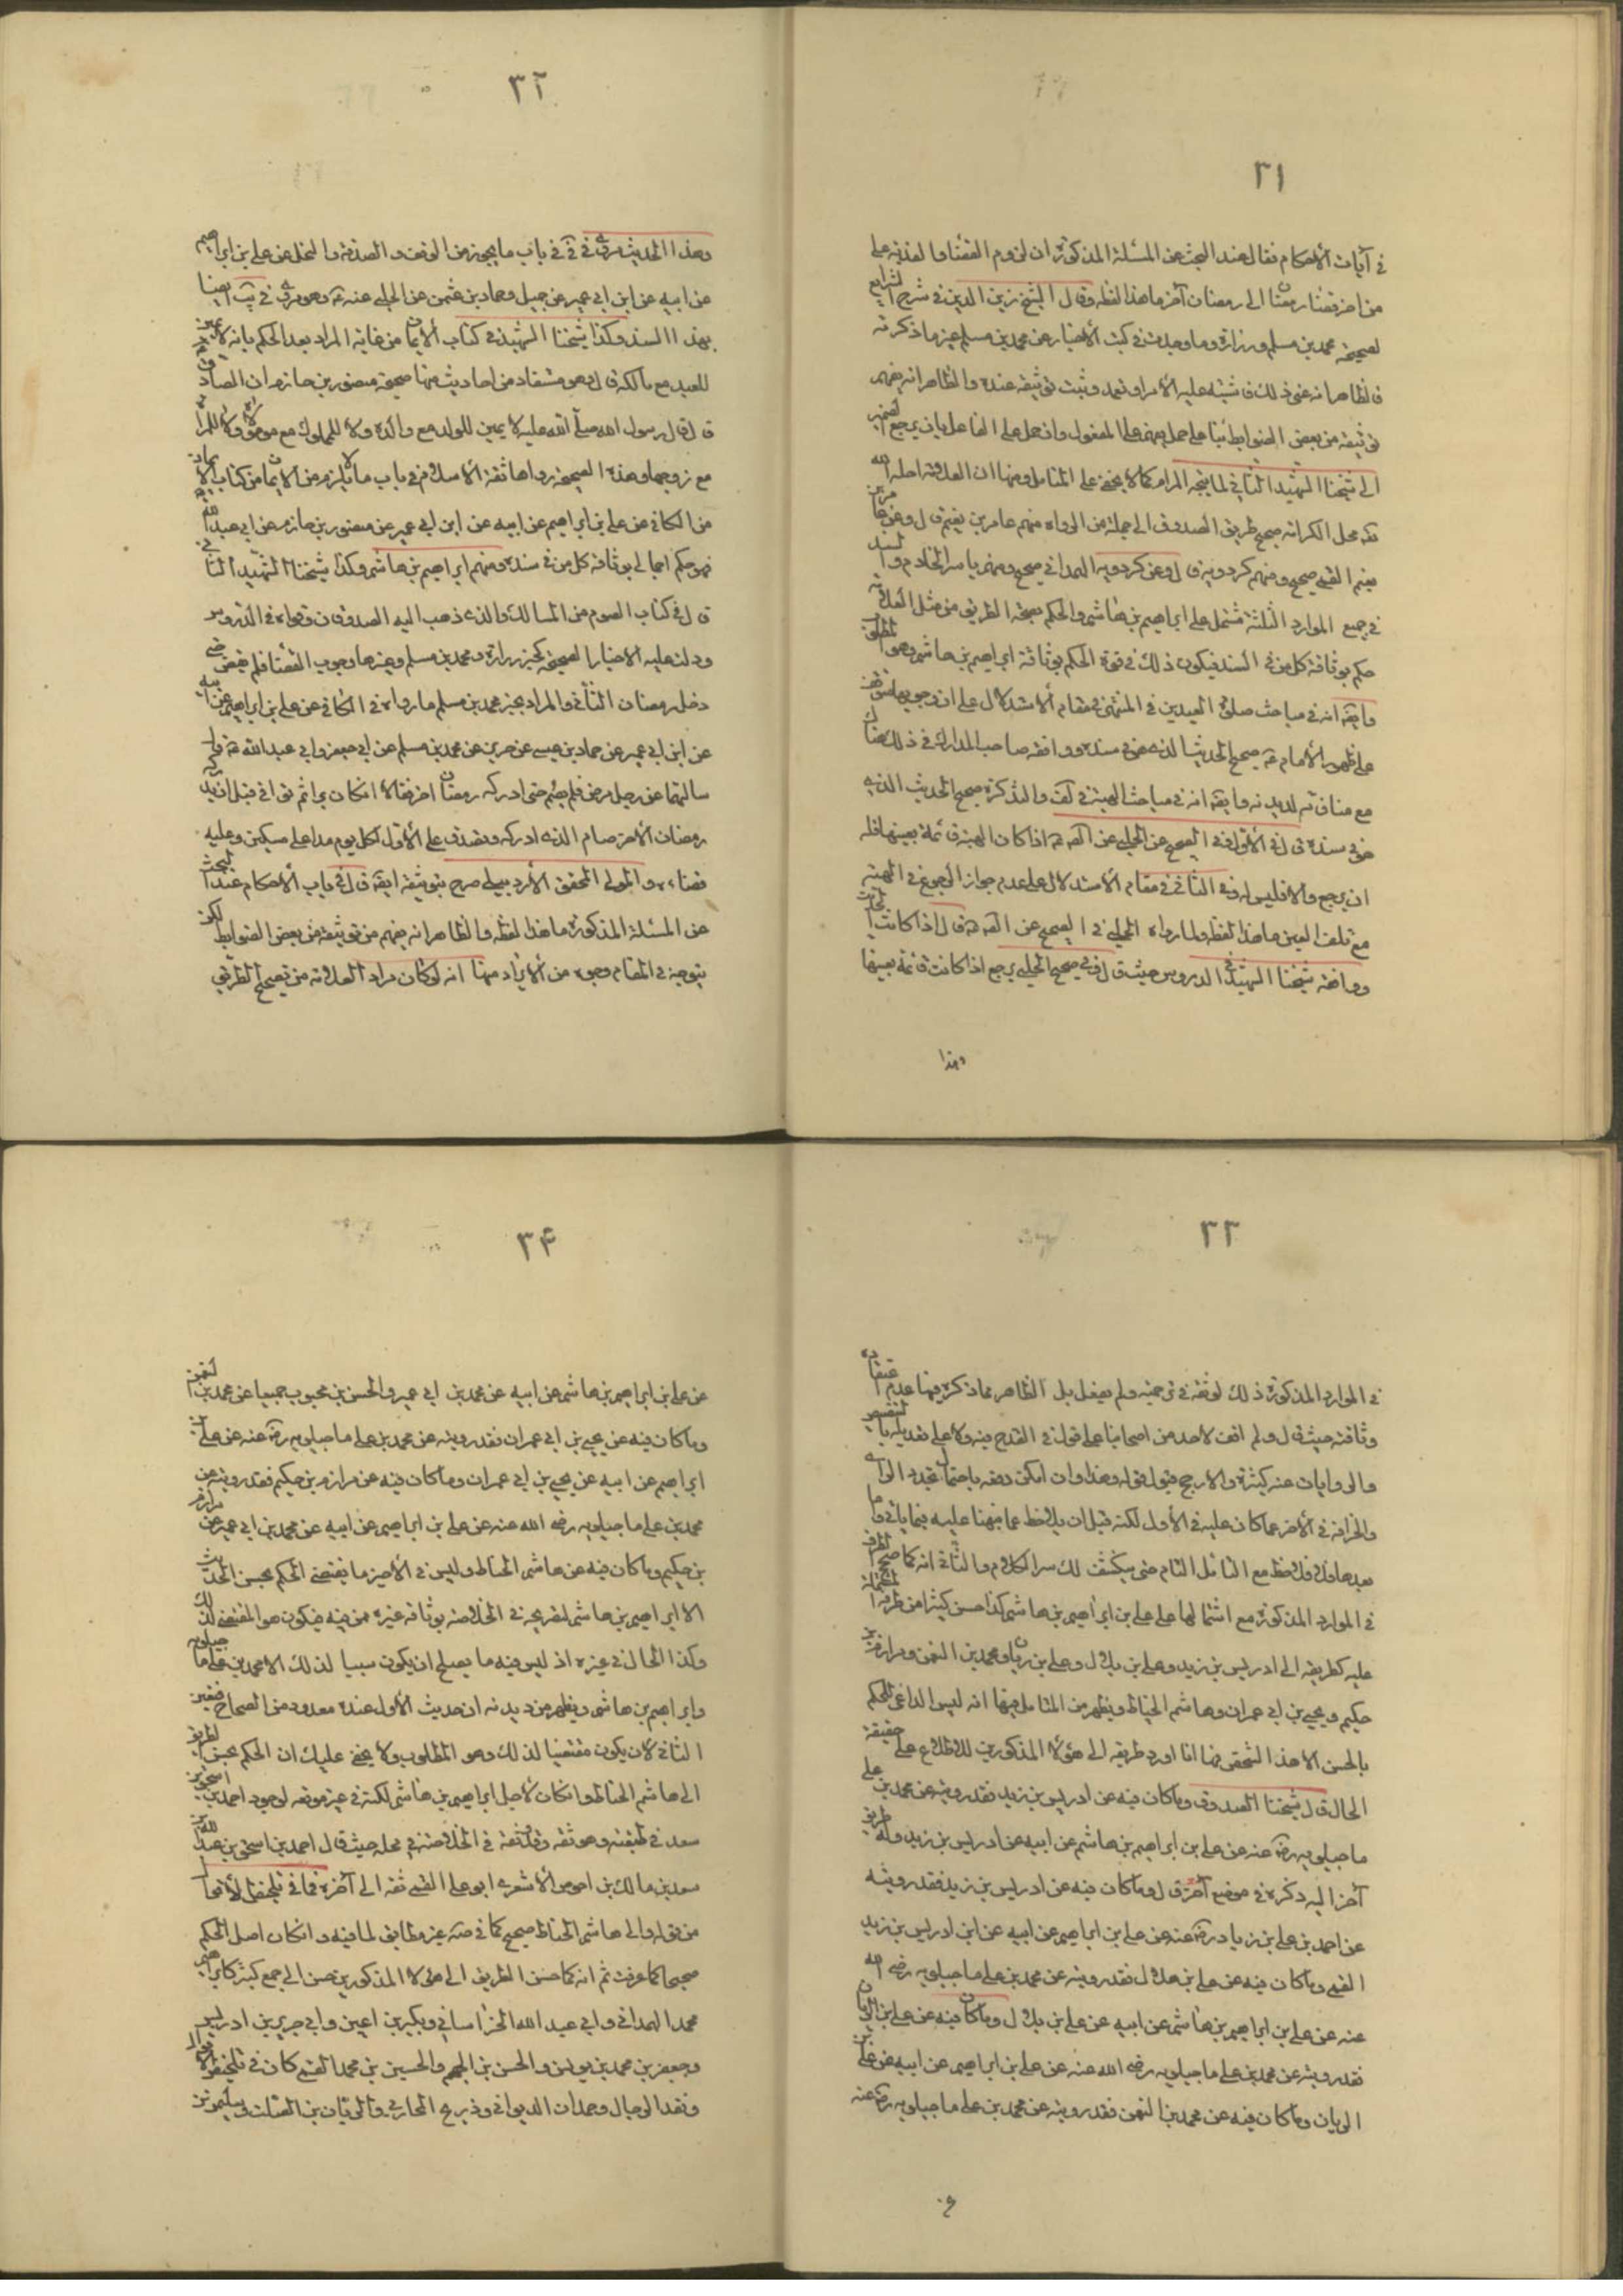 ٣١
في آيات الأحكام فقال عند البحث عن المسئلة المذكورة ان لزوم القضاء والفدية على
من اخر قضاء رمضان الى رمضان آخر ما هذا لفظه وقال الشيخ زين الدين في شرح الشرايع
لصحيحة محمد بن مسلم وزرارة وما وجدت في كتب الأخبار عن محمد بن مسلم غير ما ذكرته
فالظاهر انه عنى ذلك فاشتبه عليه الأمر او تعمد وثبت توثيقه عنده والظاهر انه يفهم
توثيقه من بعض الضوابط بناء على حمل يفهم على المفعول وان حمل على الفاعل بان يرجع الضمير
الى شيخنا الشهيد الثاني لما ينتج المرام كما لا يخفى على المتأمل ومنها ان العلامة احله الله
محل الكرامة صحح طريق الصدوق الى جملة من الرواة منهم عامر بن نعيم قال وعن عامر بن
نعيم القمي صحيح ومنهم كردويه قال وعن كردويه الهمداني صحيح ومنهم ياسر الخادم والسند
في جميع الموارد الثلثة مشتمل على ابراهيم بن هاشم والحكم بصحة الطريق من مثل العلامة
حكم بوثاقة كل من في السند فيكون ذلك في قوة الحكم بوثاقة ابراهيم بن هاشم وهو المطلوب
وايضا انه في مباحث صلوة العيدين في المنتهى في مقام الأستدلال على ان وجوبها متوقف
على ظهور الأمام ع صحح الحديث الذي هو في سنده ووافقه صاحب المدارك في ذلك هناك
مع منافاته لديدنه وايضا انه في مباحث الهبة في لف والتذكرة صحح الحديث الذي
هو في سنده قال في الأول في الصحيح عن الحلبي عن الصادق ع اذا كان الهبة قائمة بعينها فله
ان يرجع والا فليس له وفي الثاني في مقام الأستدلال على عدم جواز الرجوع في الهبة
مع تلف العين ما هذا لفظه ولما رواه الحلبي في الصحيح عن الصادق ع قال اذا كانت الهبة
ووافقه شيخنا الشهيد في الدروس حيث قال وفي صحيح الحلبي يرجع اذا كانت قائمة بعينها
وهذا
٣٢
وهذا الحديث مروي في في في باب ما يجوز من الوقف والصدقة والنحل عن علي بن ابراهيم
عن ابيه عن ابن ابي عمير عن جميل وحماد بن عثمن عن الحلبي عنه ع وهو مروي في يب ايضا
بهذا السند وكذا شيخنا الشهيد في كتاب الأيمان من غاية المراد بعد الحكم بانه لا يمين
للعبد مع مالكه قال وهو مستفاد من احاديث منها صحيحة منصور بن حازم ان الصادق
قال قال رسول الله صلى الله عليه لا يمين للولد مع والده ولا للمملوك مع مولاه ولا للمرأة
مع زوجها وهذه الصحيحة رواها ثقة الأسلام في باب ما لا يلزم من الأيمان من كتاب الأيمان
من الكافي عن علي بن ابراهيم عن ابيه عن ابن ابي عمير عن منصور بن حازم عن ابي عبد الله
فهو حكم اجمالي بوثاقة كل من في سنده ومنهم ابراهيم بن هاشم وكذا شيخنا الشهيد الثاني
قال في كتاب الصوم من المسالك والذي ذهب اليه الصدوقان وقواه في الدروس
ودلت عليه الأخبار الصحيحة كخبر زرارة ومحمد بن مسلم وغيرها وجوب القضاء فلم يقض حتى
دخل رمضان الثاني والمراد بخبر محمد بن مسلم ما رواه في الكافي عن علي بن ابراهيم عن ابيه
عن ابن ابي عمير عن حماد بن عيسى عن حريز عن محمد بن مسلم عن ابي جعفر وابي عبد الله ع قال
سالتهما عن رجل مرض فلم يصم حتى ادركه رمضان اخر فقالا ان كان برئ ثم توانى قبل ان يدركه
رمضان الأخر صام الذي ادركه وتصدق على الأول لكل يوم مدا على مسكين وعليه
قضاءه والمولى المحقق الأردبيلي صرح بتوثيقه ايضا قال في باب الأحكام عند البحث
عن المسئلة المذكورة ما هذا لفظه والظاهر انه يفهم من توثيقه من بعض الضوابط لكن
يتوجه في المقام وجوه من الأيراد منها انه لو كان مراد العلامة من تصحيح الطريق
٣٣
في الموارد المذكورة ذلك لوثقه في ترجمته ولم يفعل بل الظاهر مما ذكره فيها عدم اعتقاده
وثاقته حيث قال ولم اقف لأحد من اصحابنا على قول في القدح فيه ولا على تعديله بالتنصيص
والروايات عنه كثيرة والارجح قبول قوله وهذا وان امكن دفعه باحتمال تجدد الراى
والخرافة في الأخر عما كان عليه في الأول لكنه قبل ان يلاحظ عما نبهنا عليه فيما ياتي واما
بعدها فلا فلاحظ مع التأمل التام حتى ينكشف لك سر الكلام والثاني انه كما صحح الطرق
في الموارد المذكورة مع اشتمالها على علي بن ابراهيم بن هاشم كذا حسن كثيرا من طرقه المشتملة
عليه كطريقه الى ادريس بن زيد وعلي بن بلال وعلي بن ريان ومحمد بن النعمن ومرازم بن
حكيم ويحيى بن ابي عمران وهاشم الحناط ويظهر من المتامل فيها انه ليس الداعي للحكم
بالحسن الا هذا الشخص وها انا اورد طريقه الى هؤلاء المذكورين للاطلاع على حقيقة
الحال قال شيخنا الصدوق وما كان فيه عن ادريس بن زيد فقد رويته عن محمد بن علي
ماجيلويه رضي عنه عن علي بن ابراهيم بن هاشم عن ابيه عن ادريس بن زيد وله طريق
آخر اليه ذكره في موضع آخر قال وما كان فيه عن ادريس بن زيد فقد رويته
عن احمد بن علي بن زياد رضي عنه عن علي بن ابراهيم عن ابيه عن ابن ادريس بن زيد
القمي وما كان فيه عن علي بن بلال فقد رويته عن محمد بن علي ماجيلويه رضي الله
عنه عن علي بن ابراهيم بن هاشم عن ابيه عن علي بن بلال وما كان فيه عن علي بن الريان
فقد رويته عن محمد بن علي ماجيلويه رضي الله عنه عن علي بن ابراهيم عن ابيه عن علي بن
الريان وما كان فيه عن محمد بن النعمن فقد رويته عن محمد بن علي ماجيلويه رضي عنه
٣۴
عن علي بن ابراهيم بن هاشم عن ابيه عن محمد بن ابي عمير والحسن بن محبوب جميعا عن محمد بن النعمن
وما كان فيه عن يحيى بن ابي عمران فقد رويته عن محمد بن علي ماجيلويه رضي عنه عن علي بن
ابراهيم عن ابيه عن يحيى بن ابي عمران وما كان فيه عن مرازم بن حكيم فقد رويته عن
محمد بن علي ماجيلويه رضي الله عنه عن علي بن ابراهيم عن ابيه عن محمد بن ابي عمير عن مرازم
بن حكيم وما كان فيه عن هاشم الحناط وليس في الأخير ما يقتضي الحكم بحسن الحديث
الا ابراهيم بن هاشم لتصريحه في الخلاصة بوثاقة غيره ممن فيه فيكون هو المقتضي لذلك
وكذا الحال في غيره اذ ليس فيه ما يصلح ان يكون سببا لذلك الا محمد بن علي ماجيلويه
وابراهيم بن هاشم ويظهر من ديدنه ان حديث الأول عنده معدود من الصحاح فتعين
الثاني لأن يكون مقتضيا لذلك وهو المطلوب ولا يخفى عليك ان الحكم بحسن الطريق
الى هاشم الحناط وان كان لأجل ابراهيم بن هاشم لكنه في غير موقعه لوجود احمد بن اسحق بن
سعد في طبقته وهو ثقة وقد وثقه في الخلاصة في محله حيث قال احمد بن اسحق بن عبد الله بن
سعد بن مالك بن احوص الأشعري ابو علي القمي ثقة الى آخره فما في تلخيص الأقوال
من قوله والى هاشم الحناط صحيح كما في صه غير مطابق لما فيه وان كان اصل الحكم
صحيحا كما عرفت ثم انه كما حسن الطريق الى هؤلاء المذكورين حسن الى جمع كثير كابراهيم
محمد الهمداني وابي عبد الله الخراساني وبكير بن اعين وابي جرير بن ادريس
وجعفر بن محمد بن يونس والحسن بن الجهم والحسين بن محمد القمي كان في تلخيص الأقوال
ونقد الرجال وحمدان الديواني وذريح المحاربي والريان بن الصلت وسليمن بن